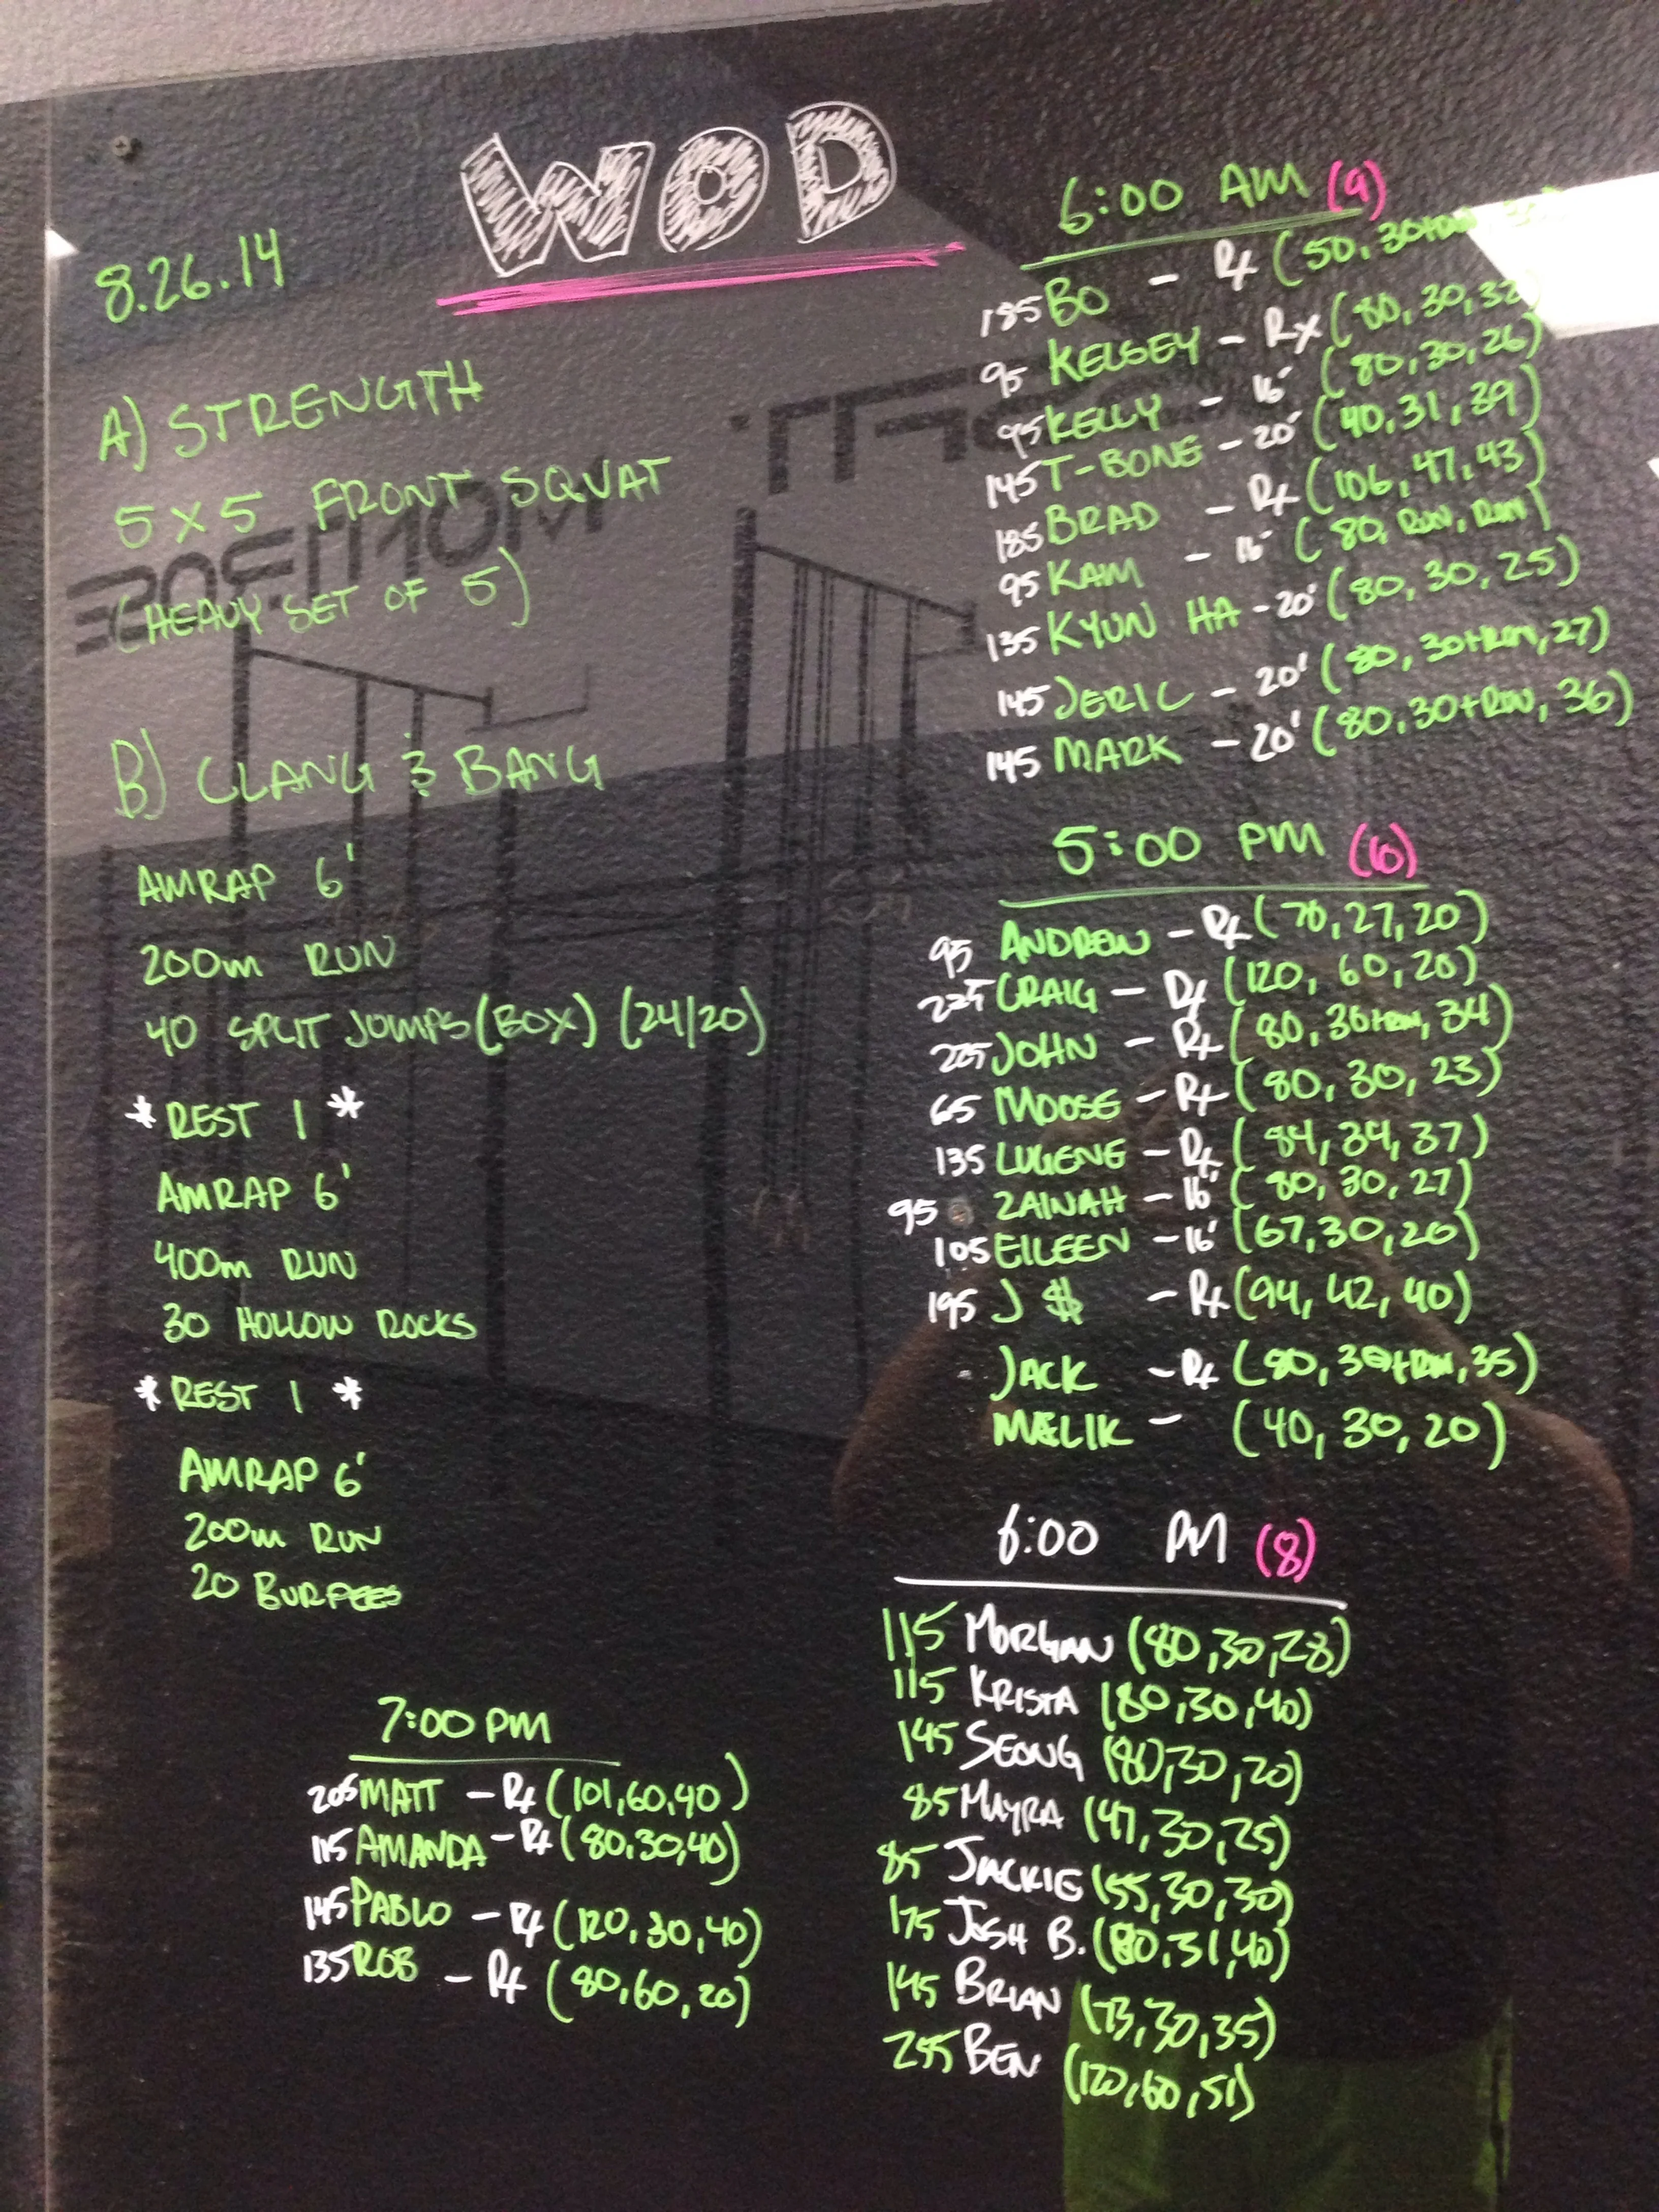 WOD
8.26.14
A) STRENGTH
5 X 5 FRONT SQUAT
(HEAVY SET OF 5)
B) CLANG & BANG
AMRAP 6'
200m RUN
40 SPLIT JUMPS (BOX) (24/20)
* REST 1 *
AMRAP 6'
400m RUN
30 HOLLOW ROCKS
* REST 1 *
AMRAP 6'
200m RUN
20 BURPEES
7:00 PM
205 MATT - Rx (101,60,40)
115 AMANDA - Rx (80,30,40)
145 PABLO - Rx (120,30,40)
135 ROB - Rx (80,60,20)
6:00 AM (9)
185 BO - Rx (50, 30+RUN,
95 KELSEY - Rx (80, 30, 32
95 KELLY - 16" (80, 30, 26)
145 T-BONE - 20" (40, 31, 39)
185 BRAD - Rx (106, 47, 43)
95 KAM - 16" (80, RUN, RUN)
135 KYUN HA - 20" (80, 30, 25)
145 JERIC - 20" (80, 30+RUN, 27)
145 MARK - 20" (80, 30+RUN, 36)
5:00 PM
95 ANDREW - Rx (70, 27, 20)
225 CRAIG - Rx (120, 60, 20)
JOHN - Rx (80, 30+RUN, 34)
65 MOOSE - Rx (80, 30, 23)
135 LUGENE - Rx (84, 34, 37)
95 ZAINAH - 16" (80, 30, 27)
105 EILEEN - 16" (67, 30, 20)
195 J $ - Rx (94, 42, 40)
- JACK - Rx (80, 30+RUN, 35)
MALIK - (40, 30, 20)
6:00 PM (8)
115 MORGAN (80, 30, 28)
115 KRISTA (80, 30, 40)
145 SEONG (80, 30, 20)
85 MAYRA (47, 30, 25)
85 JACKIE (55, 30, 30)
175 JOSH B. (80, 31, 40)
145 BRIAN (73, 30, 35)
255 BEN (120, 60, 51)